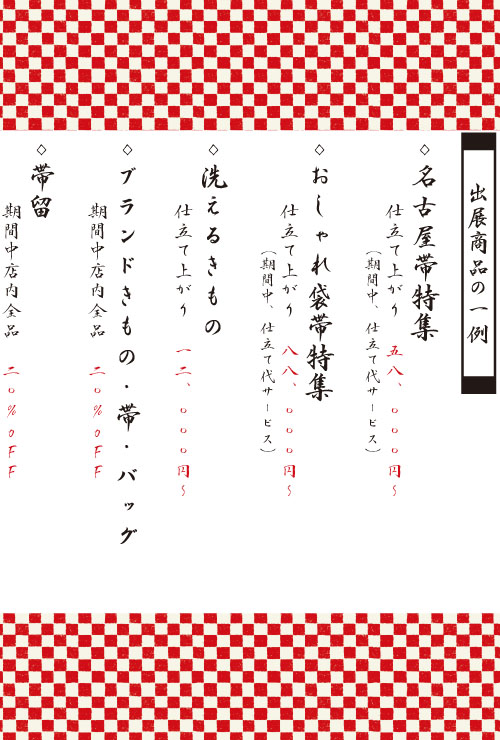 出展商品の一例
◇名古屋帯特集
仕立て上がり 五八、〇〇〇円～
（期間中、仕立て代サービス）
◇おしゃれ袋帯特集
仕立て上がり 八八、〇〇〇円～
（期間中、仕立て代サービス）
◇洗えるきもの
仕立て上がり 一二、〇〇〇円～
◇ブランドきもの・帯・バッグ
期間中店内全品 二〇％ＯＦＦ
◇帯留
期間中店内全品 二〇％ＯＦＦ